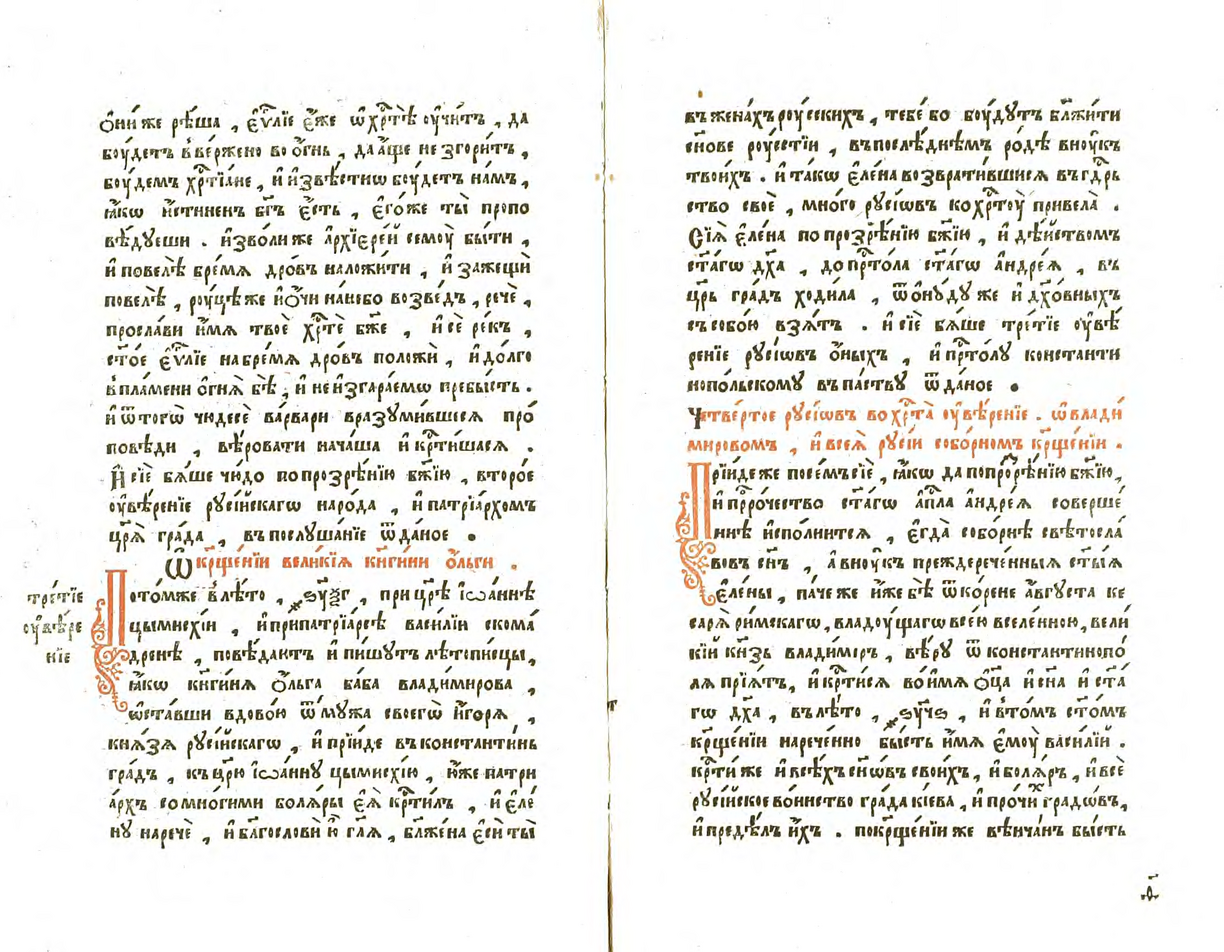 Ѻни́ же рѣ́ша , є҆ѵⷢ҇лїе є҆́же ѡ҆ хрⷭ҇тѣ̀ ᲂу҆чи́тъ , да
бꙋ́детъ в̾ве́ржено во ѻ҆́гнь , да а҆́ще не згори́тъ ,
бꙋ́демъ хрⷭ҇тїа́не , и҆ и҆звѣ́стиѡ бꙋ́детъ на́мъ ,
ꙗ҆́кѡ и҆́стиненъ бг҃ъ є҆́сть , є҆го́же ты̀ пропо
вѣ́дꙋеши . и҆зво́ли же а҆рхїєре́й семꙋ̀ бы́ти ,
и҆ повелѣ̀ бре́мѧ дро́въ наложи́ти , и҆ зажещѝ
повелѣ̀ , рꙋ́цѣ же и҆ ѻ҆́чи на́небо возве́дъ , речѐ ,
просла́ви и҆́мѧ твоѐ хрⷭ҇тѐ бж҃е , и҆ сѐ ре́къ ,
ст҃о́е є҆ѵⷢ҇лїе на бре́мѧ дро́въ положѝ , и҆ до́лго
в̾ пла́мени ѻ҆гнѧ̀ бѣ̀ , и҆ не и҆згара́емѡ пребы́сть .
и҆ ѿ тогѡ̀ чюдесѐ ва́рвари вразꙋми́вшесѧ про́
повѣди , вѣ́ровати нача́ша и҆ крⷭ҇ти́шасѧ .
И҆ сїѐ бѧ́ше чю́до по прозрѣ́нїю бж҃їю , второ́е
ᲂу҆вѣ́ренїе рꙋсі́йскагѡ наро́да , и҆ патрїа́рхомъ
цр҃ѧ̀ гра́да , въ послꙋша́нїе ѿда́ное .
Ѡ҆ крщ҃е́нїи вели́кїѧ кн҃ги́ни ѻ҆́льги .
тре́тїе
ᲂу҆вѣ́ре
нїе
Пото́мже в̾ лѣ́то , ҂ѕ҃уѯг , при цр҃ѣ̀ і҆ѡа́ннѣ
цымисхі́и , и҆ при патрїа́рсѣ васи́лїи скома́
дренѣ , повѣ́даютъ и҆ пи́шꙋтъ лѣтопи́сцы ,
ꙗ҆́кѡ кн҃ги́нѧ ѻ҆́льга ба́ба влади́мирова ,
ѡ҆ста́вши вдово́ю ѿ мꙋ́жа своегѡ̀ и҆́горѧ ,
кнѧ́зѧ рꙋсі́йскагѡ , и҆ прїи́де въ константи́нь
гра́дъ , къ цр҃ю̀ і҆ѡа́ннꙋ цымисхі́ю , ю҆́же патри
а́рхъ со мно́гими болѧ́ры є҆ѧ̀ крⷭ҇ти́лъ , и҆ є҆ле́
нꙋ наречѐ , и҆ бл҃гословѝ ю҆̀ гл҃ѧ , бл҃же́на є҆сѝ ты̀
въ жена́хъ рꙋ́сскихъ , тебе́ бо бꙋ́дꙋтъ бл҃жи́ти
сн҃ове рꙋ́стїи , въ послѣ́днѣмъ ро́дѣ внꙋ́къ
твои́хъ . и҆ та́кѡ є҆ле́на возврати́вшисѧ въ гдⷭ҇рь
ство своѐ , мно́го рꙋсі́ѡвъ ко хрⷭ҇тꙋ̀ привела̀ .
Сїѧ̀ є҆ле́на по прозрѣ́нїю бж҃їю , и҆ дѣ́йствомъ
ст҃а́гѡ дх҃а , до прⷭ҇то́ла ст҃а́гѡ а҆ндре́ѧ , въ
цр҃ь гра́дъ ходи́ла , ѿѻнꙋ́дꙋ же и҆ дх҃о́вныхъ
съ собо́ю взѧ́тъ . и҆ сїѐ бѧ́ше тре́тїе ᲂу҆вѣ́
ренїе рꙋсі́ѡвъ ѻ҆́ныхъ , и҆ прⷭ҇то́лꙋ константи
нопо́льскомꙋ въ па́ствꙋ ѿда́ное .
Четве́ртое рꙋсі́ѡвъ во хрⷭ҇та̀ ᲂу҆вѣ́ренїе . ѡ҆ влади́
мировомъ , и҆ всеѧ̀ рꙋсі́и собо́рномъ крщ҃е́нїи .
Прїи́де же посе́мъ сїѐ , ꙗ҆́кѡ да по прозрѣ́нїю бж҃їю ,
и҆ прⷪ҇ро́чество ст҃а́гѡ а҆пⷭ҇ла а҆ндре́ѧ соверше́
ннѣ и҆спо́лнитсѧ , є҆гда̀ собо́рнѣ свѣтосла́
вовъ сн҃ъ , а҆ внꙋ́къ преждерече́нныѧ ст҃ы́ѧ
є҆ле́ны , па́че же и҆́же бѣ̀ ѿ ко́рене а҆́вгꙋста ке
сарѧ̀ ри́мскагѡ , владꙋ́щагѡ все́ю вселе́нною , вели́
кїй кнз҃ь влади́миръ , вѣ́рꙋ ѿ константинопо́
лѧ прїѧ́тъ , и҆ крⷭ҇ти́сѧ во и҆́мѧ ѻ҆ц҃а̀ и҆ сн҃а и҆ ст҃а́
гѡ дх҃а , въ лѣ́то , ҂ѕ҃уч҃ѕ , и҆ в̾ то́мъ ст҃о́мъ
крщ҃е́нїи нарече́нно бы́сть и҆́мѧ є҆мꙋ̀ васи́лїй .
Крⷭ҇ти́ же и҆ всѣ́хъ сн҃ѡ́въ свои́хъ , и҆ болѧ́ръ , и҆ всѐ
рꙋсі́йское во́инство гра́да кі́ева , и҆ про́чиⷯ гра́дѡвъ ,
и҆ предѣ́лъ и҆́хъ . по крщ҃е́нїи же вѣ́нчанъ бы́сть